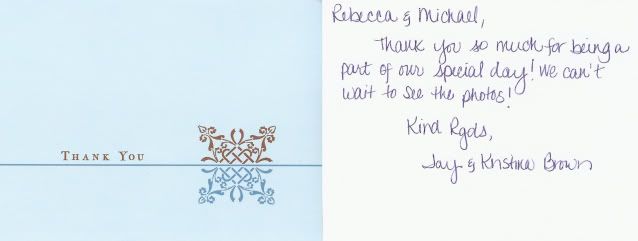 THANK YOU
Rebecca & Michael,
Thank you so much for being a
part of our special day! We can't
wait to see the photos!
Kind Rgds,
Jay & Kristina Brown